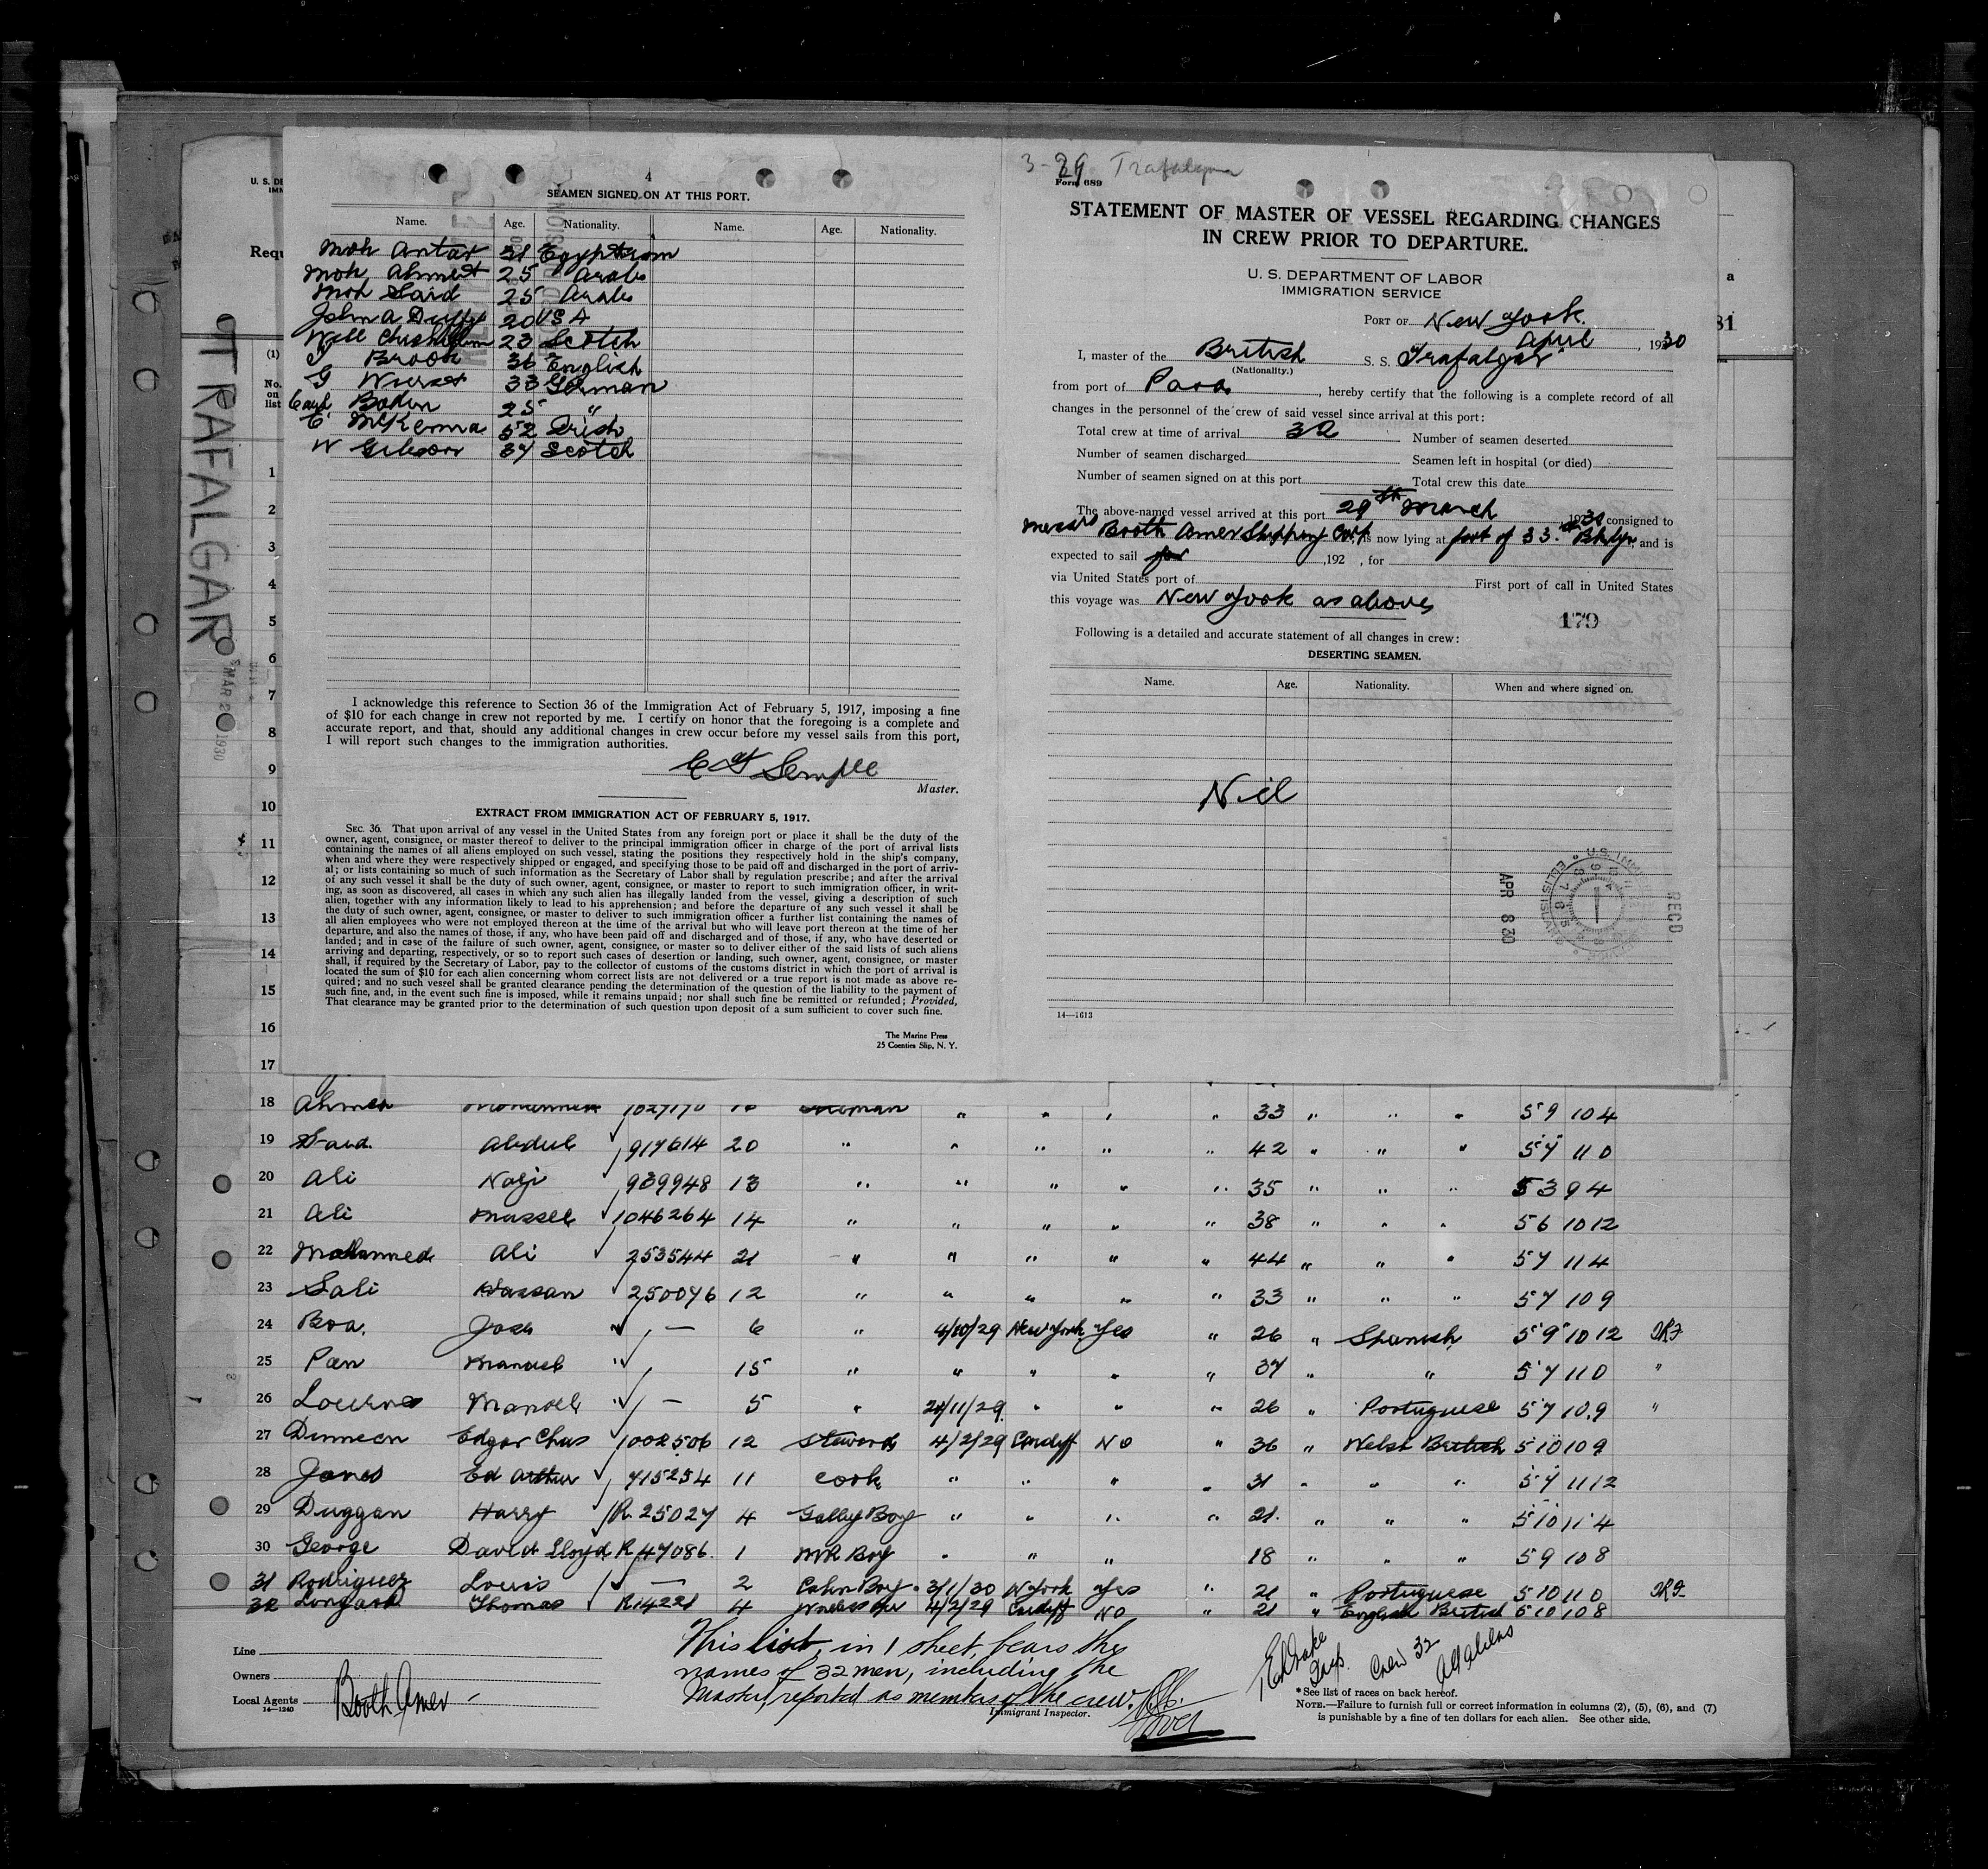 4
SEAMEN SIGNED ON AT THIS PORT.
Name. Age. Nationality. Name. Age. Nationality.
Moh Antar 21 Egyptian
Moh Ahmed 25 Arab
Moh Said 25 Arab
John A Duffy 20 USA
Will 23 Scotch
Brook 36 English
G 33 German
Carl Boden 25 "
McKenna 52 Irish
W Gibson 34 Scotch
I acknowledge this reference to Section 36 of the Immigration Act of February 5, 1917, imposing a fine
of $10 for each change in crew not reported by me. I certify on honor that the foregoing is a complete and
accurate report, and that, should any additional changes in crew occur before my vessel sails from this port,
I will report such changes to the immigration authorities.
Semple
Master.
EXTRACT FROM IMMIGRATION ACT OF FEBRUARY 5, 1917.
SEC. 36. That upon arrival of any vessel in the United States from any foreign port or place it shall be the duty of the
owner, agent, consignee, or master thereof to deliver to the principal immigration officer in charge of the port of arrival lists
containing the names of all aliens employed on such vessel, stating the positions they respectively hold in the ship's company,
when and where they were respectively shipped or engaged, and specifying those to be paid off and discharged in the port of arriv-
al; or lists containing so much of such information as the Secretary of Labor shall by regulation prescribe; and after the arrival
of any such vessel it shall be the duty of such owner, agent, consignee, or master to report to such immigration officer, in writ-
ing, as soon as discovered, all cases in which any such alien has illegally landed from the vessel, giving a description of such
alien, together with any information likely to lead to his apprehension; and before the departure of any such vessel it shall be
the duty of such owner, agent, consignee, or master to deliver to such immigration officer a further list containing the names of
all alien employees who were not employed thereon at the time of the arrival but who will leave port thereon at the time of her
departure, and also the names of those, if any, who have been paid off and discharged and of those, if any, who have deserted or
landed; and in case of the failure of such owner, agent, consignee, or master so to deliver either of the said lists of such aliens
arriving and departing, respectively, or so to report such cases of desertion or landing, such owner, agent, consignee, or master
shall, if required by the Secretary of Labor, pay to the collector of customs of the customs district in which the port of arrival is
located the sum of $10 for each alien concerning whom correct lists are not delivered or a true report is not made as above re-
quired; and no such vesrel shall be granted clearance pending the determination of the question of the liability to the payment of
such fine, and, in the event such fine is imposed, while it remains unpaid; nor shall such fine be remitted or refunded; Provided,
That clearance may be granted prior to the determination of such question upon deposit of a sum sufficient to cover such fine.
The Marine Press
25 Coenties Slip, N. Y.
3-29 Trafalgar
Form 689
STATEMENT OF MASTER OF VESSEL REGARDING CHANGES
IN CREW PRIOR TO DEPARTURE.
U. S. DEPARTMENT OF LABOR
IMMIGRATION SERVICE
PORT OF New York
April , 1930
I, master of the British S. S. Trafalgar
(Nationality.)
from port of Para, hereby certify that the following is a complete record of all
changes in the personnel of the crew of said vessel since arrival at this port:
Total crew at time of arrival 32 Number of seamen deserted
Number of seamen discharged Seamen left in hospital (or died)
Number of seamen signed on at this port Total crew this date
The above-named vessel arrived at this port 29th March 1930 consigned to
Messrs Booth Amer Shipping Corp is now lying at foot of 33rd Bklyn, and is
expected to sail ,192 , for
via United States port of First port of call in United States
this voyage was New York as above
179
Following is a detailed and accurate statement of all changes in crew:
DESERTING SEAMEN.
Name. Age. Nationality. When and where signed on.
Nil
APR 8 30
RECD
14—1613
TRAFALGAR
MAR 2 1930
U. S. DE
IMM
Requ
(1)
No.
on
list
a
81
1
2
3
4
5
6
7
8
9
10
11
12
13
14
15
16
17
18 Ahmed Mohammed 33 " " " 5 9 10 4
19 Said Abdul 917614 20 " " " " " 42 " " " 5 7 11 0
20 Ali Naji 939948 13 " " " " " 35 " " " 5 3 9 4
21 Ali Mussel 1046264 14 " " " " " 38 " " " 5 6 10 12
22 Mohammed Ali 253544 21 " " " " " 44 " " " 5 7 11 4
23 Sali Hassan 250076 12 " " " " " 33 " " " 5 7 10 9
24 Boa Jose — 6 " 4/10/29 New York Yes " 26 " Spanish 5 9 10 12
25 Pan Manuel 15 " " " " " 37 " " 5 7 11 0 "
26 Manoel — 5 " 20/11/29 " " " 26 " Portuguese 5 7 10 9 "
27 Edgar Chas 1002506 12 Steward 4/2/29 Cardiff No " 36 " Welsh British 5 10 10 9
28 Jones Ed Arthur 715254 11 Cook " " " " 31 " " " 5 7 11 12
29 Duggan Harry R. 25027 4 Galley Boy " " " " 21 " " " 5 10 11 4
30 George David Lloyd R 47086 1 MR Boy " " " 18 " " " 5 9 10 8
31 Rodriguez Louis — 2 Cabin Boy 3/1/30 N York Yes " 21 " Portuguese 5 10 11 0
32 Thomas R14221 4 Wireless Opr 4/2/29 Cardiff No " 21 " English British 5 10 10 8
This list, in 1 sheet, bears the
names of 32 men, including the
Master, reported as members of the crew.
Immigrant Inspector.
Crew 32
All Aliens
Line
Owners
Local Agents Booth Amer
14—1240
*See list of races on back hereof.
NOTE.—Failure to furnish full or correct information in columns (2), (5), (6), and (7)
is punishable by a fine of ten dollars for each alien. See other side.